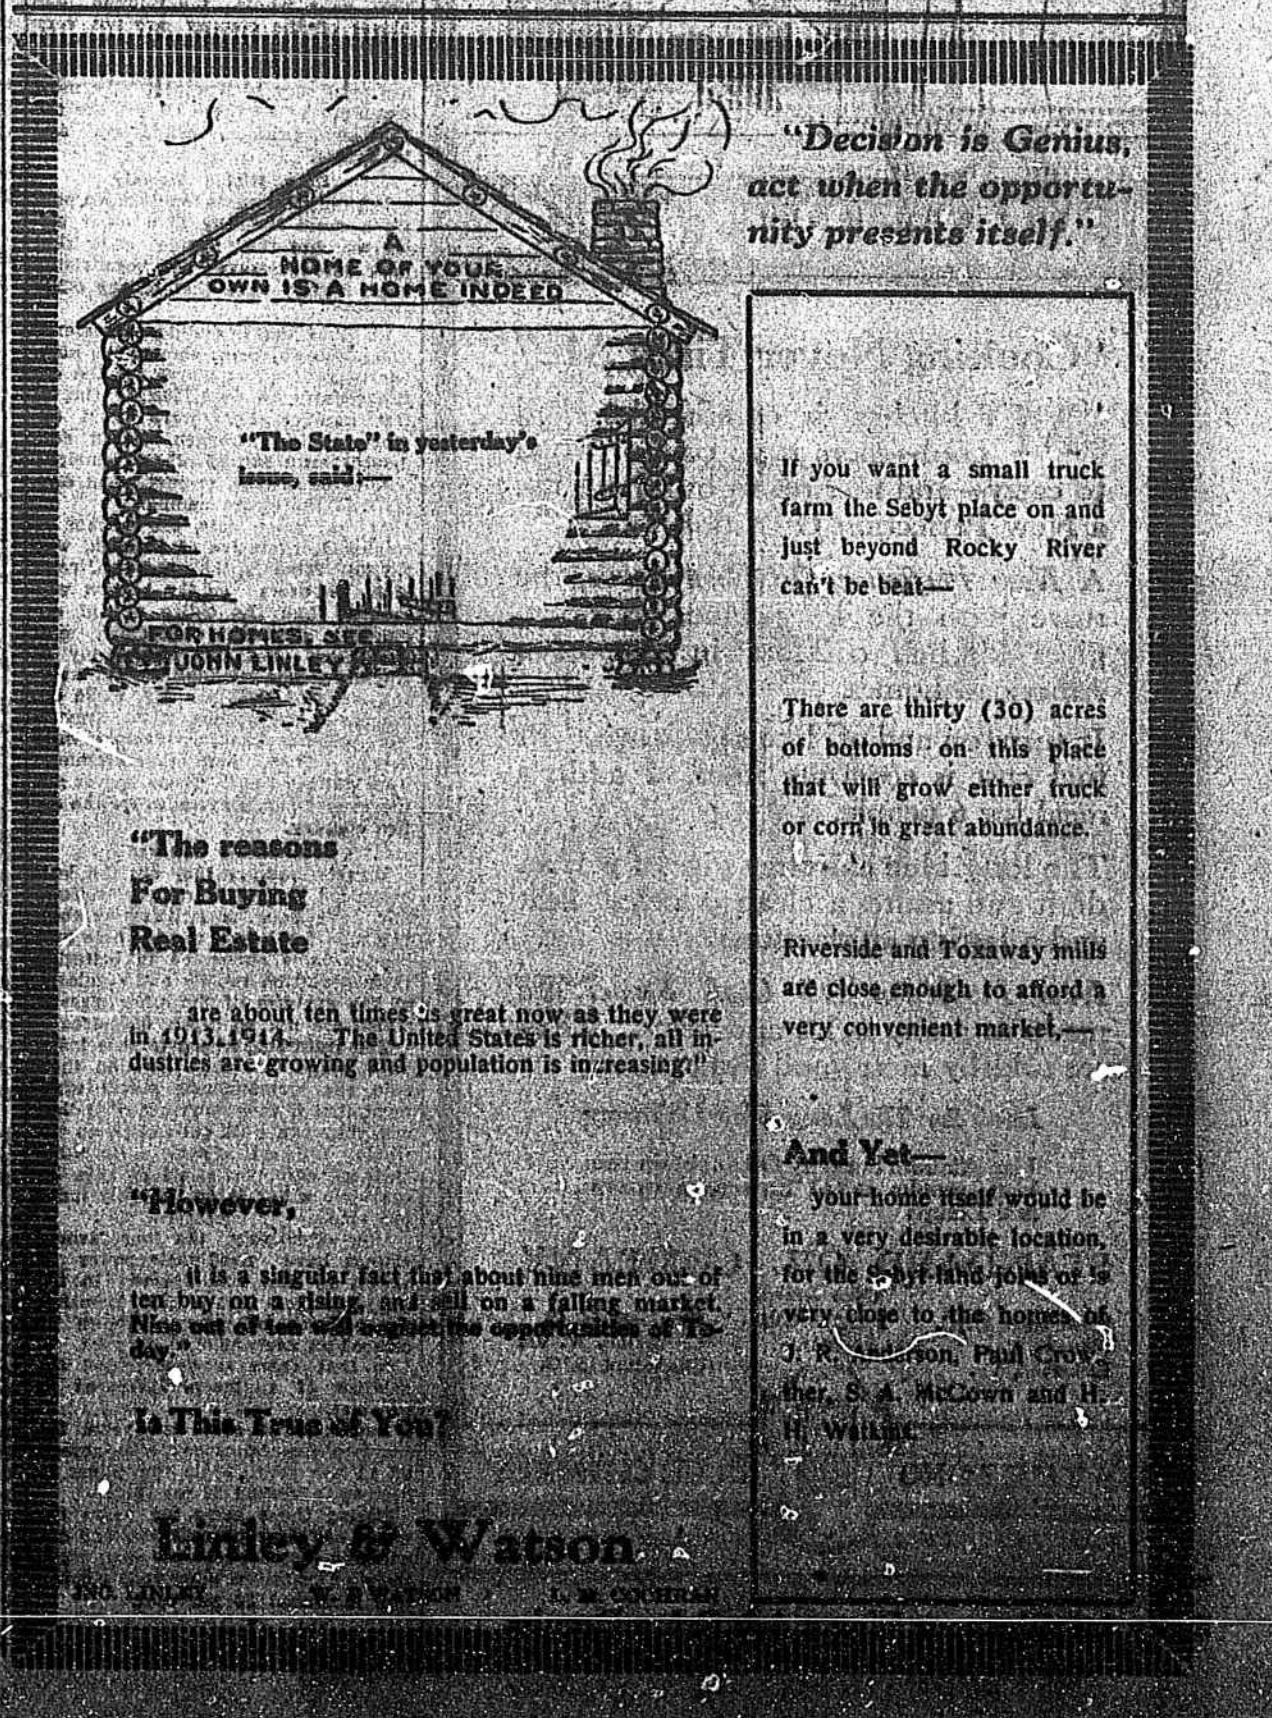 A
HOME OF YOUR
OWN IS A HOME INDEED
"The State" in yesterday's
issue, said:—
FOR HOMES, SEE
JOHN LINLEY
"The reasons
For Buying
Real Estate
are about ten times as great now as they were
in 1913-1914. The United States is richer, all in-
dustries are growing and population is increasing."
"However,
it is a singular fact that about nine men out of
ten buy on a rising, and sell on a falling market.
Nine out of ten will neglect the opportunities of To-
day."
Is This True of You?
Linley & Watson
JNO. LINLEY W. E WATSON L. M COCHRAN
"Decision is Genius,
act when the opportu-
nity presents itself."
If you want a small truck
farm the Sebyt place on and
just beyond Rocky River
can't be beat—
There are thirty (30) acres
of bottoms on this place
that will grow either truck
or corn in great abundance.
Riverside and Toxaway mills
are close enough to afford a
very convenient market,—
And Yet—
your home itself would be
in a very desirable location,
for the Sebyt land joins or is
very close to the homes of
J. R. Anderson, Paul Crow-
ther, S. A. McCown and H.
H. Watkins.